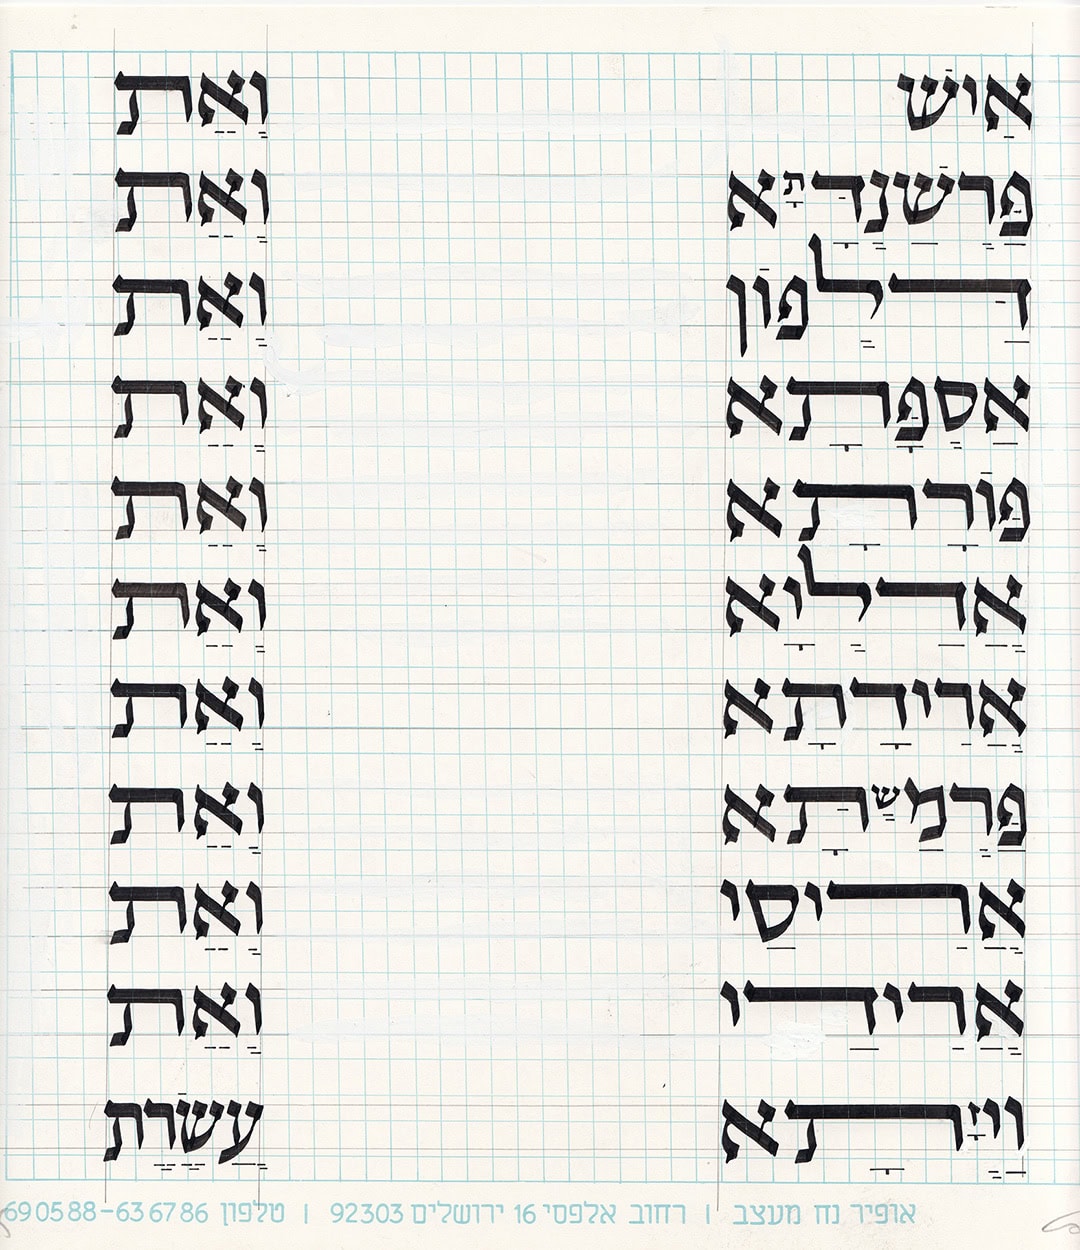 אִישׁ וְאֵת
פַּרְשַׁנְדָּתָא וְאֵת
דַּלְפוֹן וְאֵת
אַסְפָּתָא וְאֵת
פּוֹרָתָא וְאֵת
אֲדַלְיָא וְאֵת
אֲרִידָתָא וְאֵת
פַּרְמַשְׁתָּא וְאֵת
אֲרִיסַי וְאֵת
אֲרִידַי וְאֵת
וַיְזָתָא עֲשֶׂרֶת
אופיר נח מעצב | רחוב אלפסי 16 ירושלים 92303 | טלפון 636786-690588